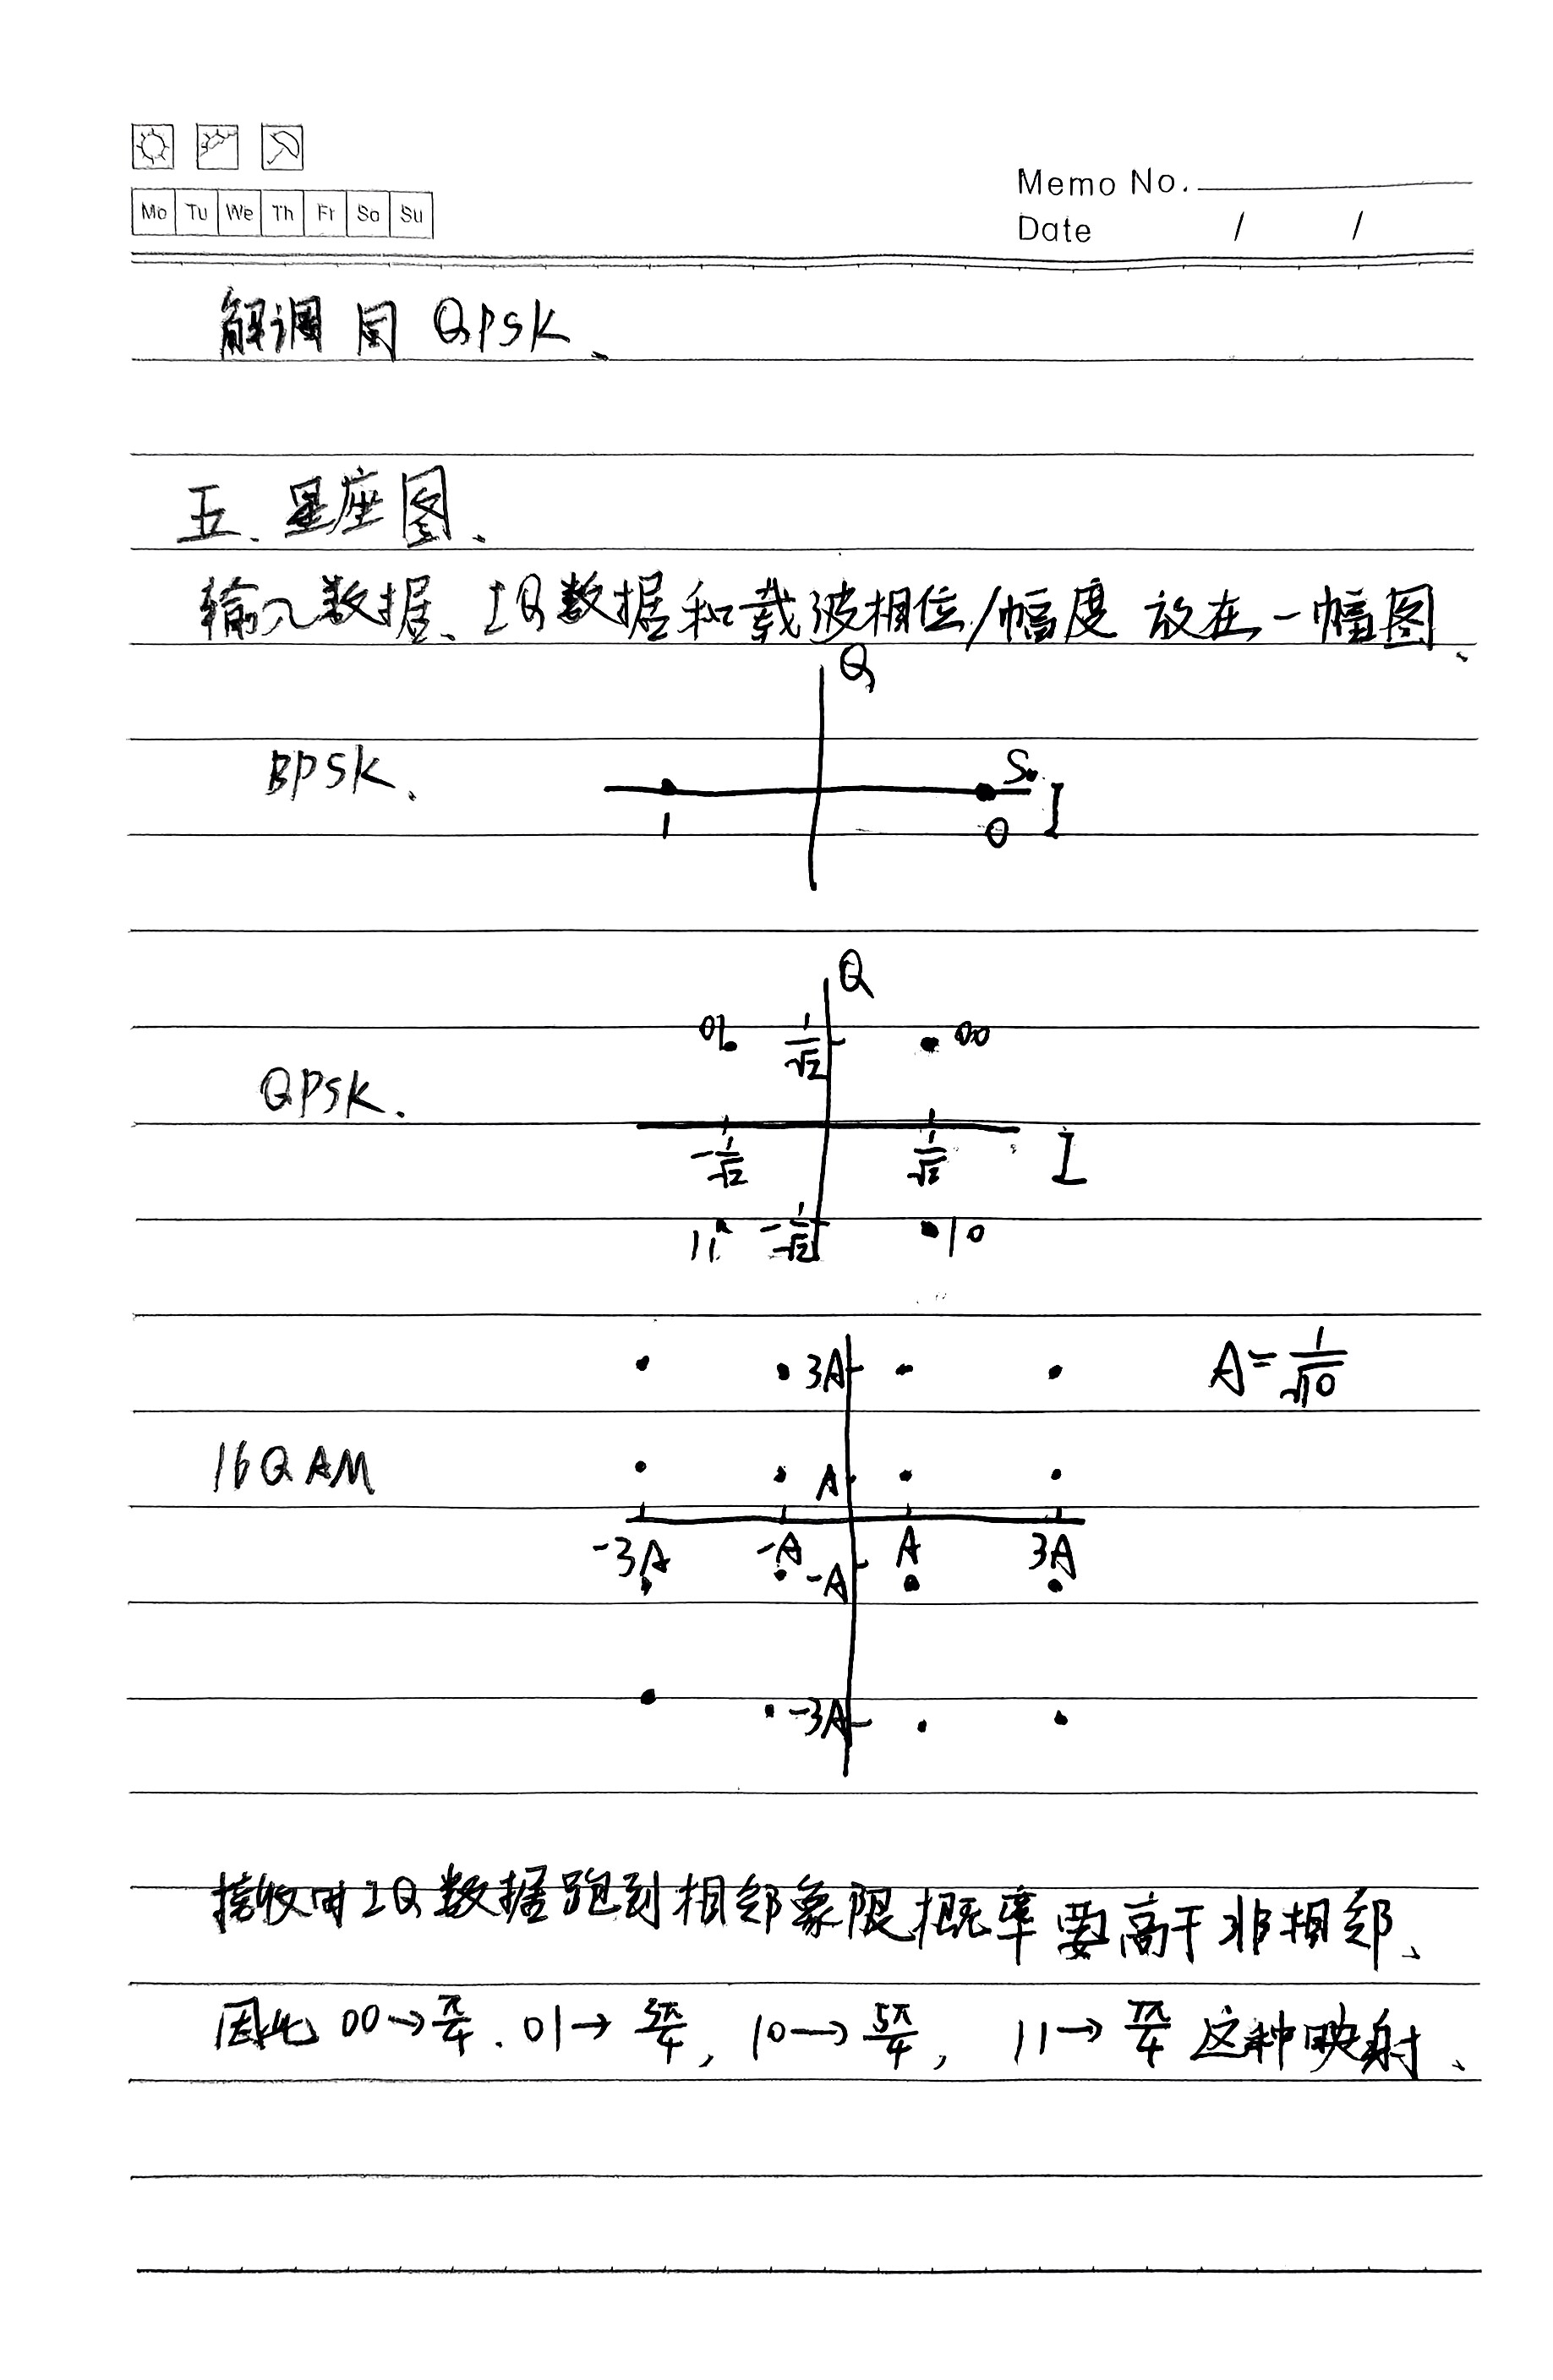 Mo Tu We Th Fr Sa Su
Memo No.
Date / /
解调同 QPSK、
五、星座图、
输入数据、IQ数据和载波相位/幅度 放在一幅图、
Q
BPSK.
S
I
1
0
Q
01
1/√2
00
QPSK.
-1/√2
1/√2
I
11
-1/√2
10
3A
A=1/√10
16QAM
A
-3A
-A
A
3A
-A
-3A
接收由IQ数据跑到相邻象限概率要高于非相邻、
因此 00→π/4. 01→3π/4, 10→5π/4, 11→7π/4 这种映射、